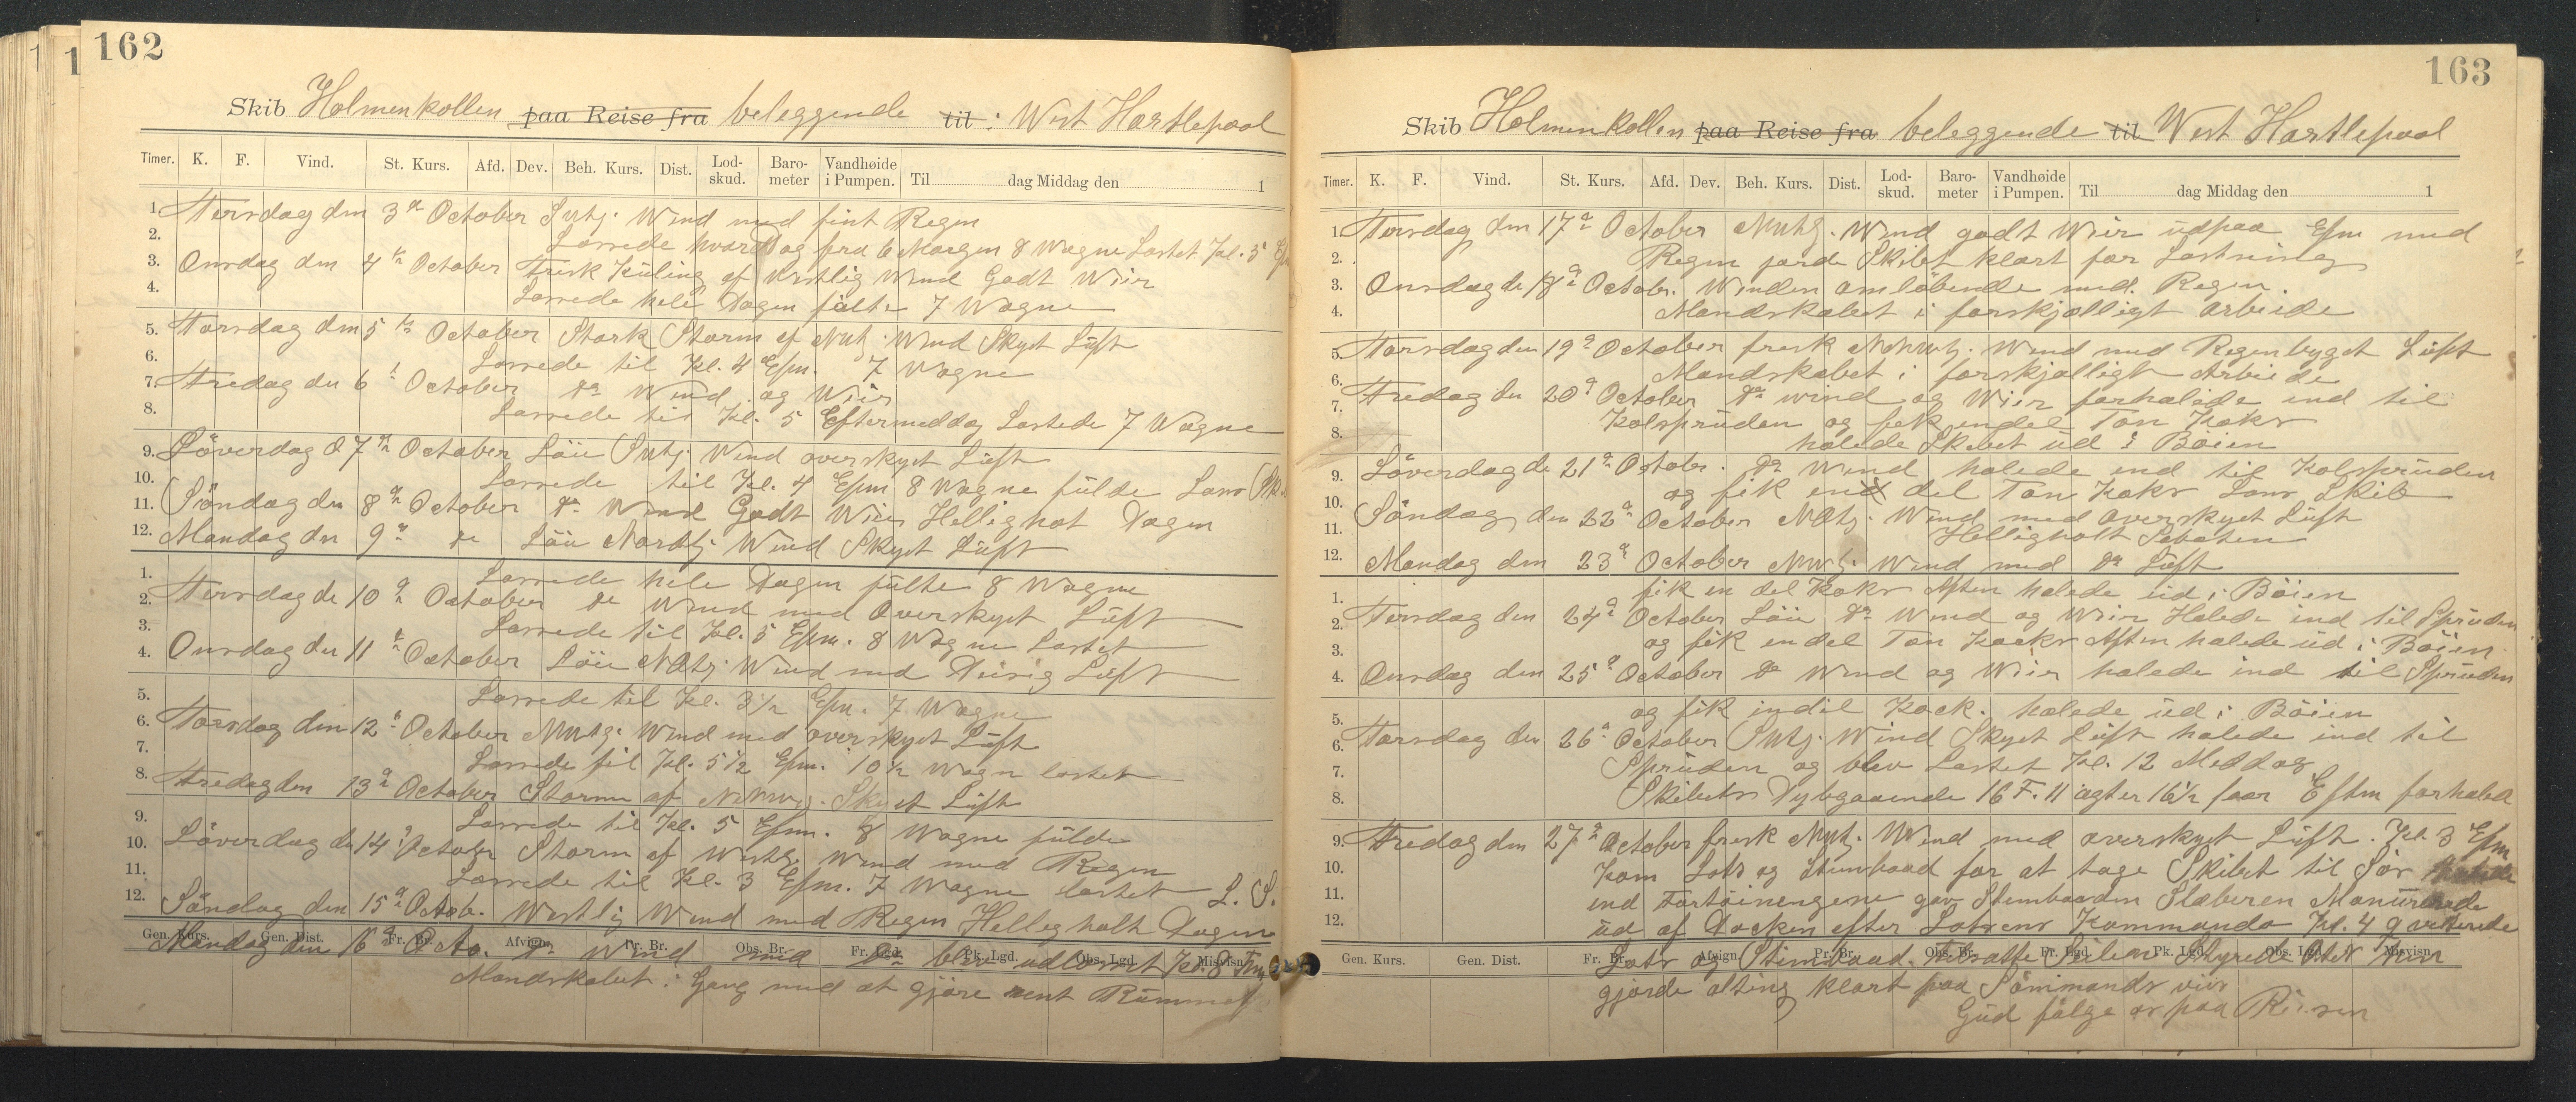 162
Skib Holmenkollen paa Reise fra beleggende til: West Hartlepool
Timer. K. F. Vind. St. Kurs. Afd. Dev. Beh. Kurs. Dist. Lod-skud. Baro-meter Vandhøide i Pumpen. Til dag Middag den 1
1. Tirsdag den 3d October Svtg. Wind med fint Regn
2. Lossede hvar Dag fra 6 Morgen 8 Wagne Lastet Kl. 5 Efm
3. Onsdag den 4de October Frisk Kuling af Westlig Wind Godt Wier
4. Lossede hele Dagen fülte 7 Wagne
5. Torsdag den 5te October Stark Storm af NWtg. Wind Skyet Lüft
6. Lossede til Kl. 4 Efm. 7 Wagne
7. Fredag den 6t October do Wind og Wier
8. Lossede til Kl. 5 Eftermeddag Lastede 7 Wagne
9. Löverdag d 7de October Löu Svtg Wind overskyet Lüft
10. Lossede til Kl. 4 Efm 8 Wagne fülde Lens
11. Söndag den 8de October do Wind Godt Wier Hellighot Dagen
12. Mandag den 9de do Löu Nordtg Wind Skyet Lüft
1. Lossede hele Dagen fülte 8 Wagne
2. Tirsdag de 10de October do Wind med Overskyet Lüft
3. Lossede til Kl. 5 Efm. 8 Wagne Lastet
4. Onsdag den 11te October Löu NOtg. Wind med Diesig Lüft
5. Lossede til Kl. 3 1/2 Efm. 7 Wagne
6. Torsdag den 12te October NWtg. Wind med overskyet Lüft
7. Lossede til Kl. 5 1/2 Efm. 10 1/2 Wagn lastet
8. Fredag den 13de October Storm af NNWtg. Skyet Lüft
9. Lossede til Kl. 5 Efm. 8 Wagne fülde
10. Löverdag de 14de October Storm af Westtg Wind med Regn
11. Lossede til Kl. 3 Efm. 7 Wagne lastet L. S.
12. Söndag den 15de Octob. Westlig Wind med Regn Hellegholt Dagen
Gen. Kurs. Gen. Dist. Fr. Br. Afvign. Pr. Br. Obs. Br. Fr. Lgd. Pk. Lgd. Obs. Lgd. Misvisn.
Mandag den 16de Octo. do Wind med do blev udlosset Kl. 8 Fm
Mandskabet i Gang med at gjöre rent Rümmet
163
Skib Holmenkollen paa Reise fra beleggende til West Hartlepool
Timer. K. F. Vind. St. Kurs. Afd. Dev. Beh. Kurs. Dist. Lod-skud. Baro-meter Vandhøide i Pumpen. Til dag Middag den 1
1. Tirsdag den 17de October NWtg. Wind godt Wier üdpaa Efm med
2. Regen jorde Skibet klart for Lastning
3. Onsdag de 18de Octobr. Winden omlöbende med. Regen.
4. Mandskabet i forskjælligt Arbeide
5. Torsdag den 19de October frisk NNWtg. Wind med Regenbyget Lüft
6. Mandskabet i forskjælligt Arbeide
7. Fredag den 20de October do wind og Wier forhalede ind til
Kolsprüden og fik endel Ton Koks
8. halede Skibet üd i Böien
9. Löverdag de 21de Octobr. do Wind halede ind til Kolsprüden
10. og fik en del Ton Koks Lens Skib
11. Söndag den 22de October NOtg. Wind med overskyet Lüft
Helligholt Sabaten
12. Mandag den 23de October NWtg. Wind med do Lüft
1. fik en del Koks Aften halede üd i Böien
2. Tirsdag den 24de October Löu do Wind og Wier Halede ind til Sprüden
3. og fik endel Ton Koks Aften halede üd i Böien
4. Onsdag den 25de October do Wind og Wier halede ind til Sprüden
5. og fik indil Kock. halede üd i Böien
6. Torsdag den 26de October Svtg. Wind Skyet Lüft halede ind til
7. Sprüden og blev Lastet Kl. 12 Meddag
8. Skibets Dybgaaende 16 F. 11 agter 16 1/2 foor Eftm forhaled
9. Fredag den 27de October frisk NWt. Wind med overskyet Lüft. Kl. 3 Efm
10. kom Lots og Stimbaad for at tage Skibet til Sör
11. ind Fortöiningene gav Stembaaden Slæberen Manürerede
12. üd af Docken efter Lotsens Kommando Kl. 4 qvitterede
Gen. Kurs. Gen. Dist. Fr. Br. Afvign. Pr. Br. Obs. Br. Fr. Lgd. Pk. Lgd. Obs. Lgd. Misvisn.
Lots og Stimbaad. tilsatte Seilene Styrede Öster
gjorde alting klart paa Sömmands vis
Gud fölge os paa Reisen